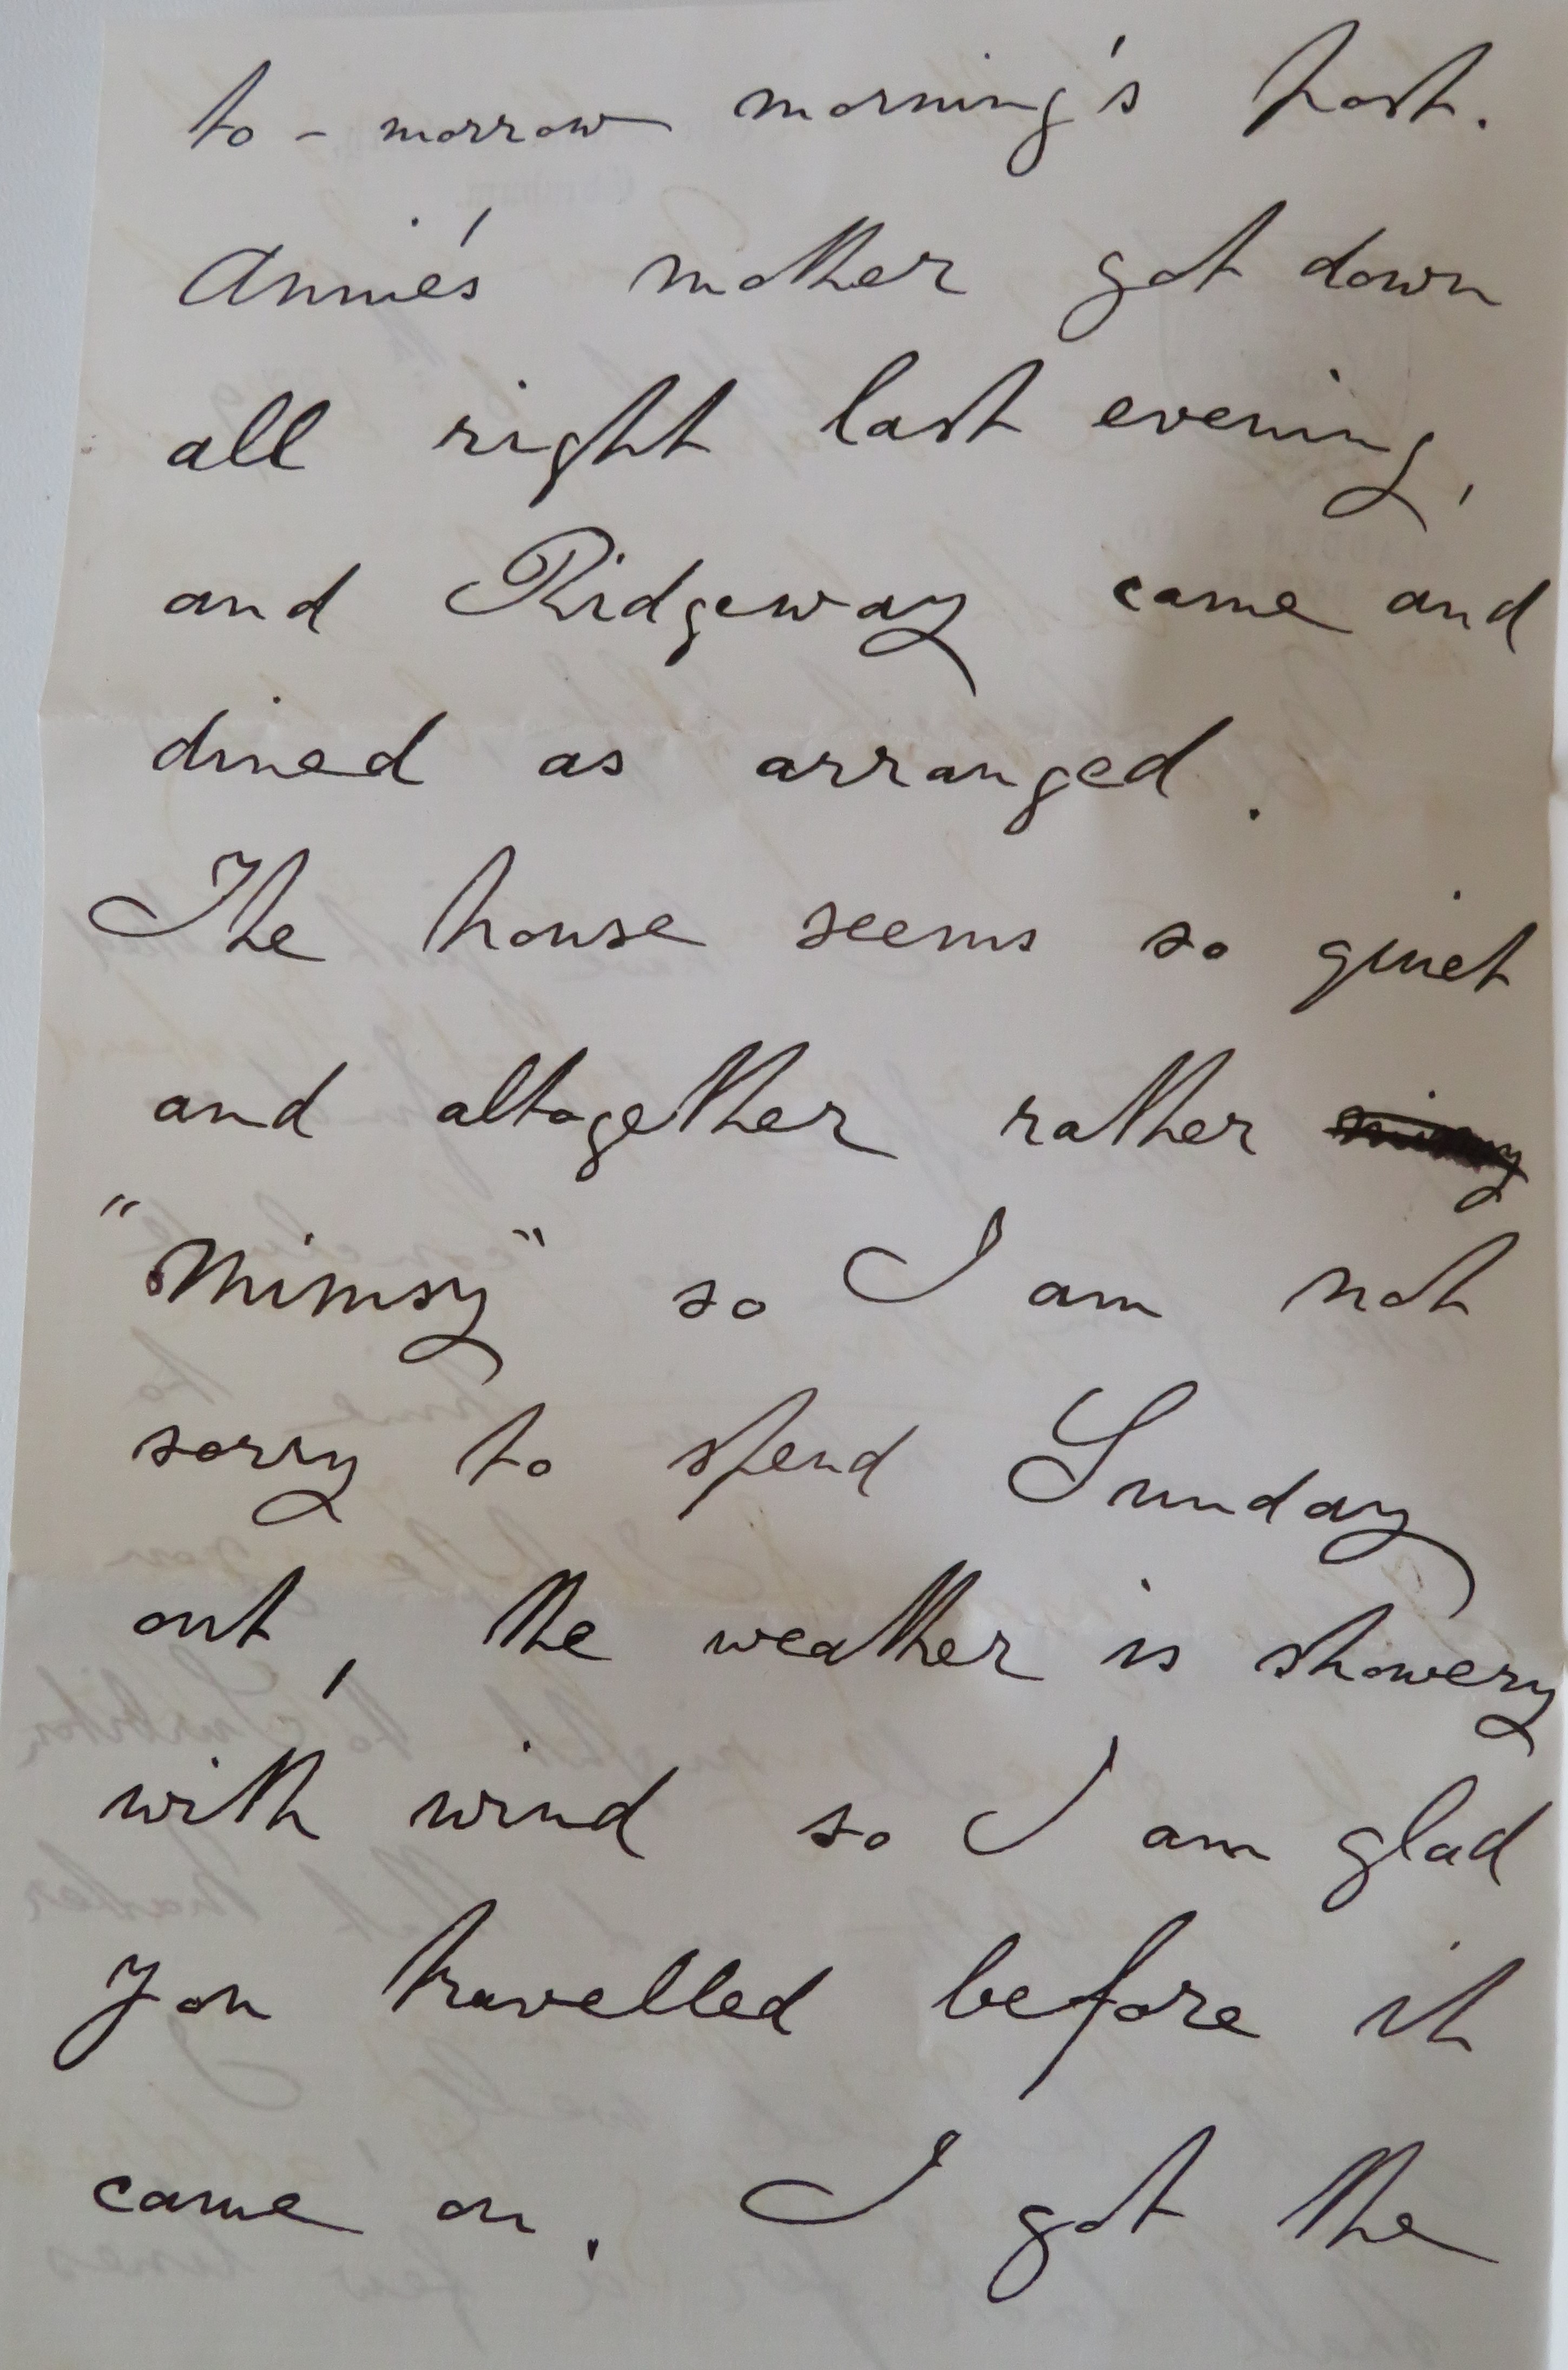 to-morrow morning's post.
Annie's mother got down
all right last evening,
and Ridgeway came and
dined as arranged.
The house seems so quiet
and altogether rather
"Mimsy" so I am not
sorry to spend Sunday
out, the weather is showery
with wind so I am glad
you travelled before it
came on. I got the